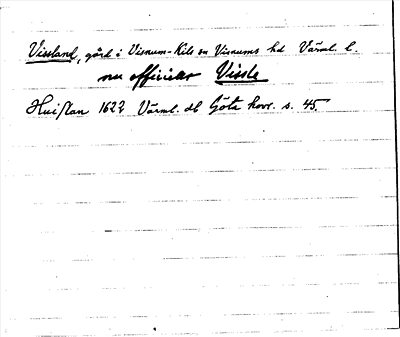 Vissland, gård i Visnum-Kils sn Visnums hd Värml. l.
nu officiellt Vissle
Huislan 1622 Värml. db Göta hovr. s. 45.